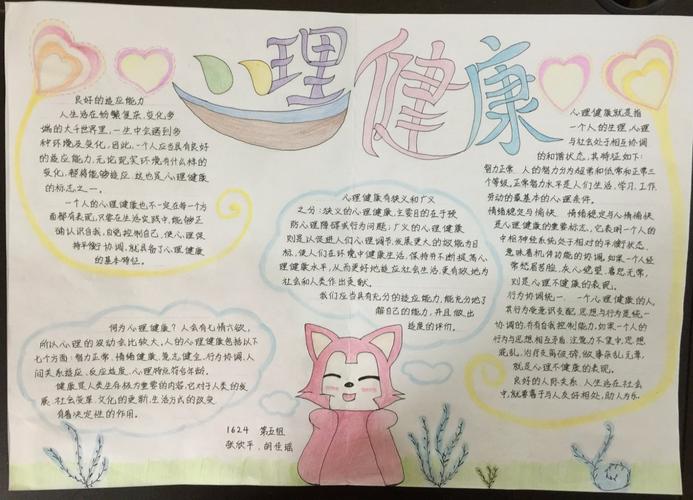 心理健康
良好的适应能力
人生活在纷繁复杂、变化多
端的大千世界里,一生中会遇到多
种环境及变化,因此,一个人应当具有良好
的适应能力,无论现实环境有什么样的
变化,都将能够适应,这也是心理健康
的标志之一。
一个人的心理健康也不一定在每一个方
面都有表现,只要在生活实践中,能够正
确认识自我,自觉控制自己,使心理保
持平衡协调,就具备了心理健康
的基本特征。
何为心理健康?人会有七情六欲,
所以心理的波动会比较大,人的心理健康包括以下
七个方面:智力正常、情绪健康、意志健全、行为协调、人
间关系适应、反应适度、心理特点符合年龄。
健康是人类生存极为重要的内容,它对于人类的发
展、社会变革、文化的更新、生活方式的改变
有着决定性的作用。
心理健康有狭义和广义
之分:狭义的心理健康,主要目的在于预
防心理障碍或行为问题;广义的心理健康,
则是以促进人们心理调节、发展更大的效能为目
标,使人们在环境中健康生活,保持并不断提高心
理健康水平,从而更好地适应社会生活,更有效地为
社会和人类作出贡献。
我们应当具有充分的适应能力,能充分地了
解自己的能力,并且做出
适度的评价。
心理健康就是指
一个人的生理、心理
与社会处于相互协调
的和谐状态,其特征如下:
智力正常 人的智力分为超常和低常和正常三
个等级,正常智力水平是人们生活、学习、工作、
劳动的最基本的心理条件。
情绪稳定与愉快 情绪稳定与心情愉快
是心理健康的重要标志,它表明一个人的
中枢神经系统处于相对的平衡状态,
意味着机体功能的协调。如果一个人经
常愁眉苦脸、灰心绝望、喜怒无常,
则是心理不健康的表现。
行为协调统一 一个心理健康的人,
其行为受意识支配,思想与行为是统一
协调的,并有自我控制能力。如果一个人的
行为与思想相互矛盾,注意力不集中,思想
混乱,做事杂乱无章,
就是心理不健康的表现。
良好的人际关系 人生活在社会
中,就要善于与人友好相处,助人为乐。
1624 第五组
张欣平、胡佳瑶